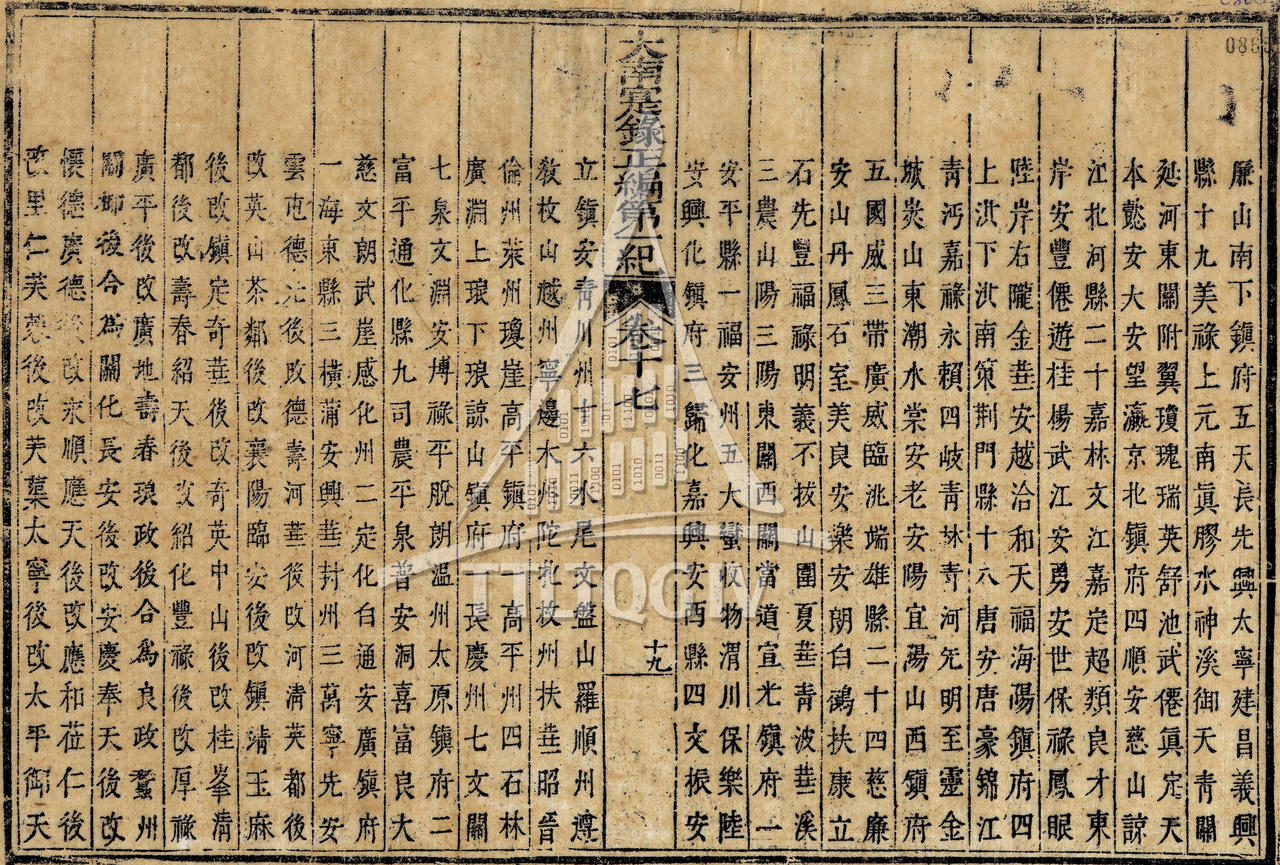 廉山南下鎮府五天長先興太寧建昌義興
縣十九美祿上元南眞膠水神溪御天青關
延河東關附翼瓊瑰瑞英舒池武僊眞定天
本懿安大安望瀛京北鎮府四順安慈山諒
江北河縣二十嘉林文江嘉定超類良才東
岸安豐僊遊桂楊武江安勇安世保祿鳳眼
陸岸右隴金華安越洽和天福海陽鎮府四
上洪下洪南策荆門縣十六唐安唐豪錦江
青沔嘉祿永賴四岐青林青河先明至靈金
城炭山東潮水棠安老安陽宜陽山西鎮府
五國威三带廣威臨洮端雄縣二十四慈廉
安山丹鳳石室美良安樂安朗白鶴扶康立
石先豐福祿明義不拔山圍夏華青波華溪
三農山陽三陽東關西關當道宣光鎮府一
安平縣一福安州五大蠻收物渭川保樂陸
安興化鎮府三歸化嘉興安西縣四文振安
大南寔錄正編第一紀 卷十七
十九
立鎮安青川州十六水尾文盤山羅順州遵
教枚山越州寧邊木州陀北枚州扶華昭晉
倫州萊州瓊崖高平鎮府一高平州四石林
廣淵上琅下琅諒山鎮府一長慶州七文關
七泉文淵安博祿平脱朗温州太原鎮府二
富平通化縣九司農平泉普安洞喜富良大
慈文朗武崖感化州二定化白通安廣鎮府
一海東縣三橫蒲安興華封州三萬寧先安
雲屯德光後改德壽河華後改河清英都後
改英山茶鄰後改襄陽臨安後改鎮靖玉麻
後改鎮定奇華後改奇英中山後改桂峯清
都後改壽春紹天後改紹化豐祿後改厚祿
廣平後改廣地壽春琅政後合爲良政蠶州
關鄉後合爲關化長安後改安慶奉天後改
懷德廣德後改永順應天後改應和莅仁後
改里仁芙蓉後改芙蕖太寧後改太平御天
0TTLTQGIV